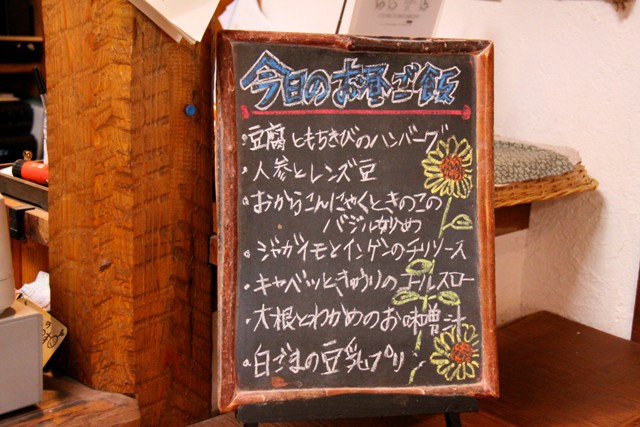 今日のお昼ご飯
・豆腐ともちきびのハンバーグ
・人参とレンズ豆
・おからこんにゃくときのこの
バジル炒め
・ジャガイモとインゲンのチリソース
・キャベツときゅうりのコールスロー
・大根とわかめのお味噌汁
・白ごまの豆乳プリン